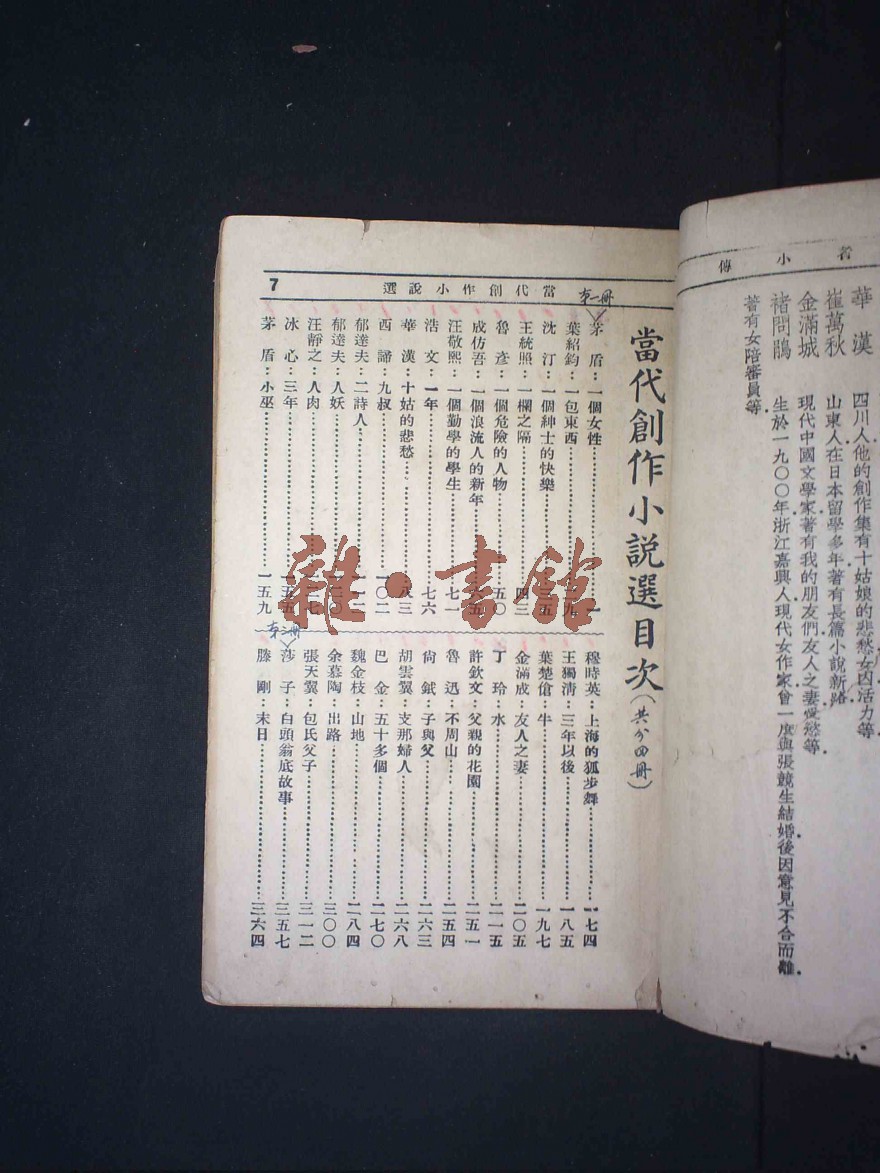 者小傳
華漢 四川人他的創作集有十姑娘的悲愁女囚活力等
崔萬秋 山東人在日本留學多年著有長篇小說新路
金滿城 現代中國文學家著有我的朋友們友人之妻愛慾等
褚問鵑 生於一九〇〇年浙江嘉興人現代女作家曾一度與張競生結婚後因意見不合而離
著有女陪審員等
當代創作小說選
7
當代創作小說選目次(共分四冊)
第一冊
茅盾：一個女性………一
葉紹鈞：一包東西………
沈汀：一個紳士的快樂………三五
王統照：一欄之隔………四三
魯彥：一個危險的人物………五〇
成仿吾：一個浪流人的新年………
汪敬熙：一個勤學的學生………七一
浩文：一年………七六
華漢：十姑的悲愁………八三
西諦：九叔………一〇二
郁達夫：二詩人………一一二
郁達夫：人妖………一二〇
汪靜之：人肉………一二七
冰心：三年………一五五
茅盾：小巫………一五九
穆時英：上海的狐步舞………一七四
王獨清：三年以後………一八五
葉楚傖：牛………一九七
金滿成：友人之妻………二〇五
丁玲：水………二一五
許欽文：父親的花園………二五一
魯迅：不周山………二五四
尙鉞：子與父………二六三
胡雲翼：支那婦人………二六八
巴金：五十多個………二七〇
魏金枝：山地………二八四
余慕陶：出路………三〇〇
張天翼：包氏父子………三一二
第二冊
莎子：白頭翁底故事………三五七
滕剛：末日………三六四
雜·書館